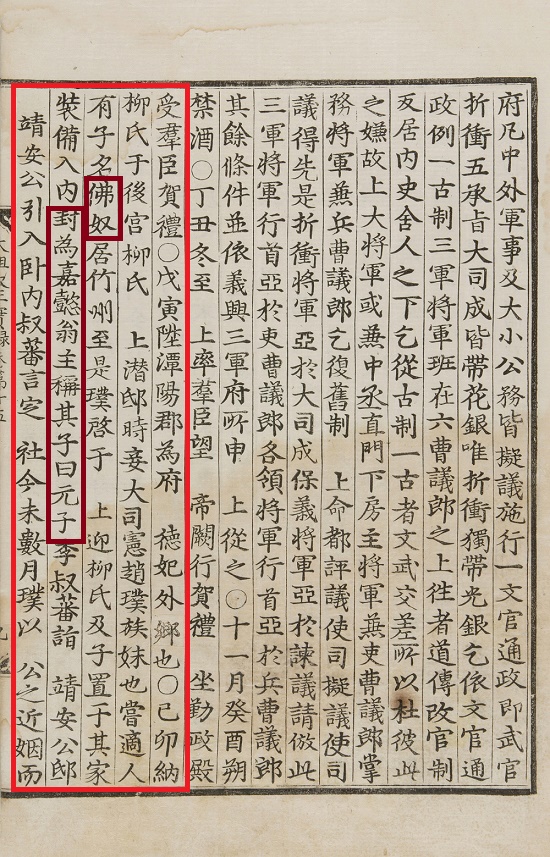 府凡中外軍事及大小公務皆擬議施行一文官通政即武官
折衝五承旨大司成皆帶花銀唯折衝獨帶光銀乞依文官通
政例一古制三軍將軍班在六曹議郎之上徃者道傳改官制
反居内史舍人之下乞從古制一古者文武交差所以杜彼此
之嫌故上大將軍或兼中丞直門下房主將軍兼吏曹議郎掌
務將軍兼兵曹議郎乞復舊制 上命都評議使司擬議使司
議得先是折衝將軍亞於大司成保義將軍亞於諫議請倣此
三軍將軍行首亞於吏曹議郎各領將軍行首亞於兵曹議郎
其餘條件並依義興三軍府所申 上從之○十一月癸酉朔
禁酒○丁丑冬至 上率羣臣望 帝闕行賀禮 坐勤政殿
受羣臣賀禮○戊寅陞潭陽郡為府 德妃外鄉也○己卯納
柳氏于後宮柳氏 上潛邸時妾大司憲趙璞族妹也嘗適人
有子名佛奴居竹州至是璞啓于 上迎柳氏及子置于其家
装備入内封為嘉懿翁主稱其子曰元子李叔蕃詣 靖安公邸
靖安公引入卧内叔蕃言定 社今未數月璞以 公之近姻而